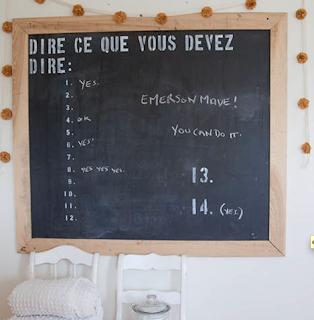 DIRE CE QUE VOUS DEVEZ
DIRE:
1. YES.
2.
3.
4. OK
5.
6. YES!
7.
8. YES YES YES.
9.
10.
11.
12.
EMERSON MAVE!
YOU CAN DO IT.
13.
14. (YES)